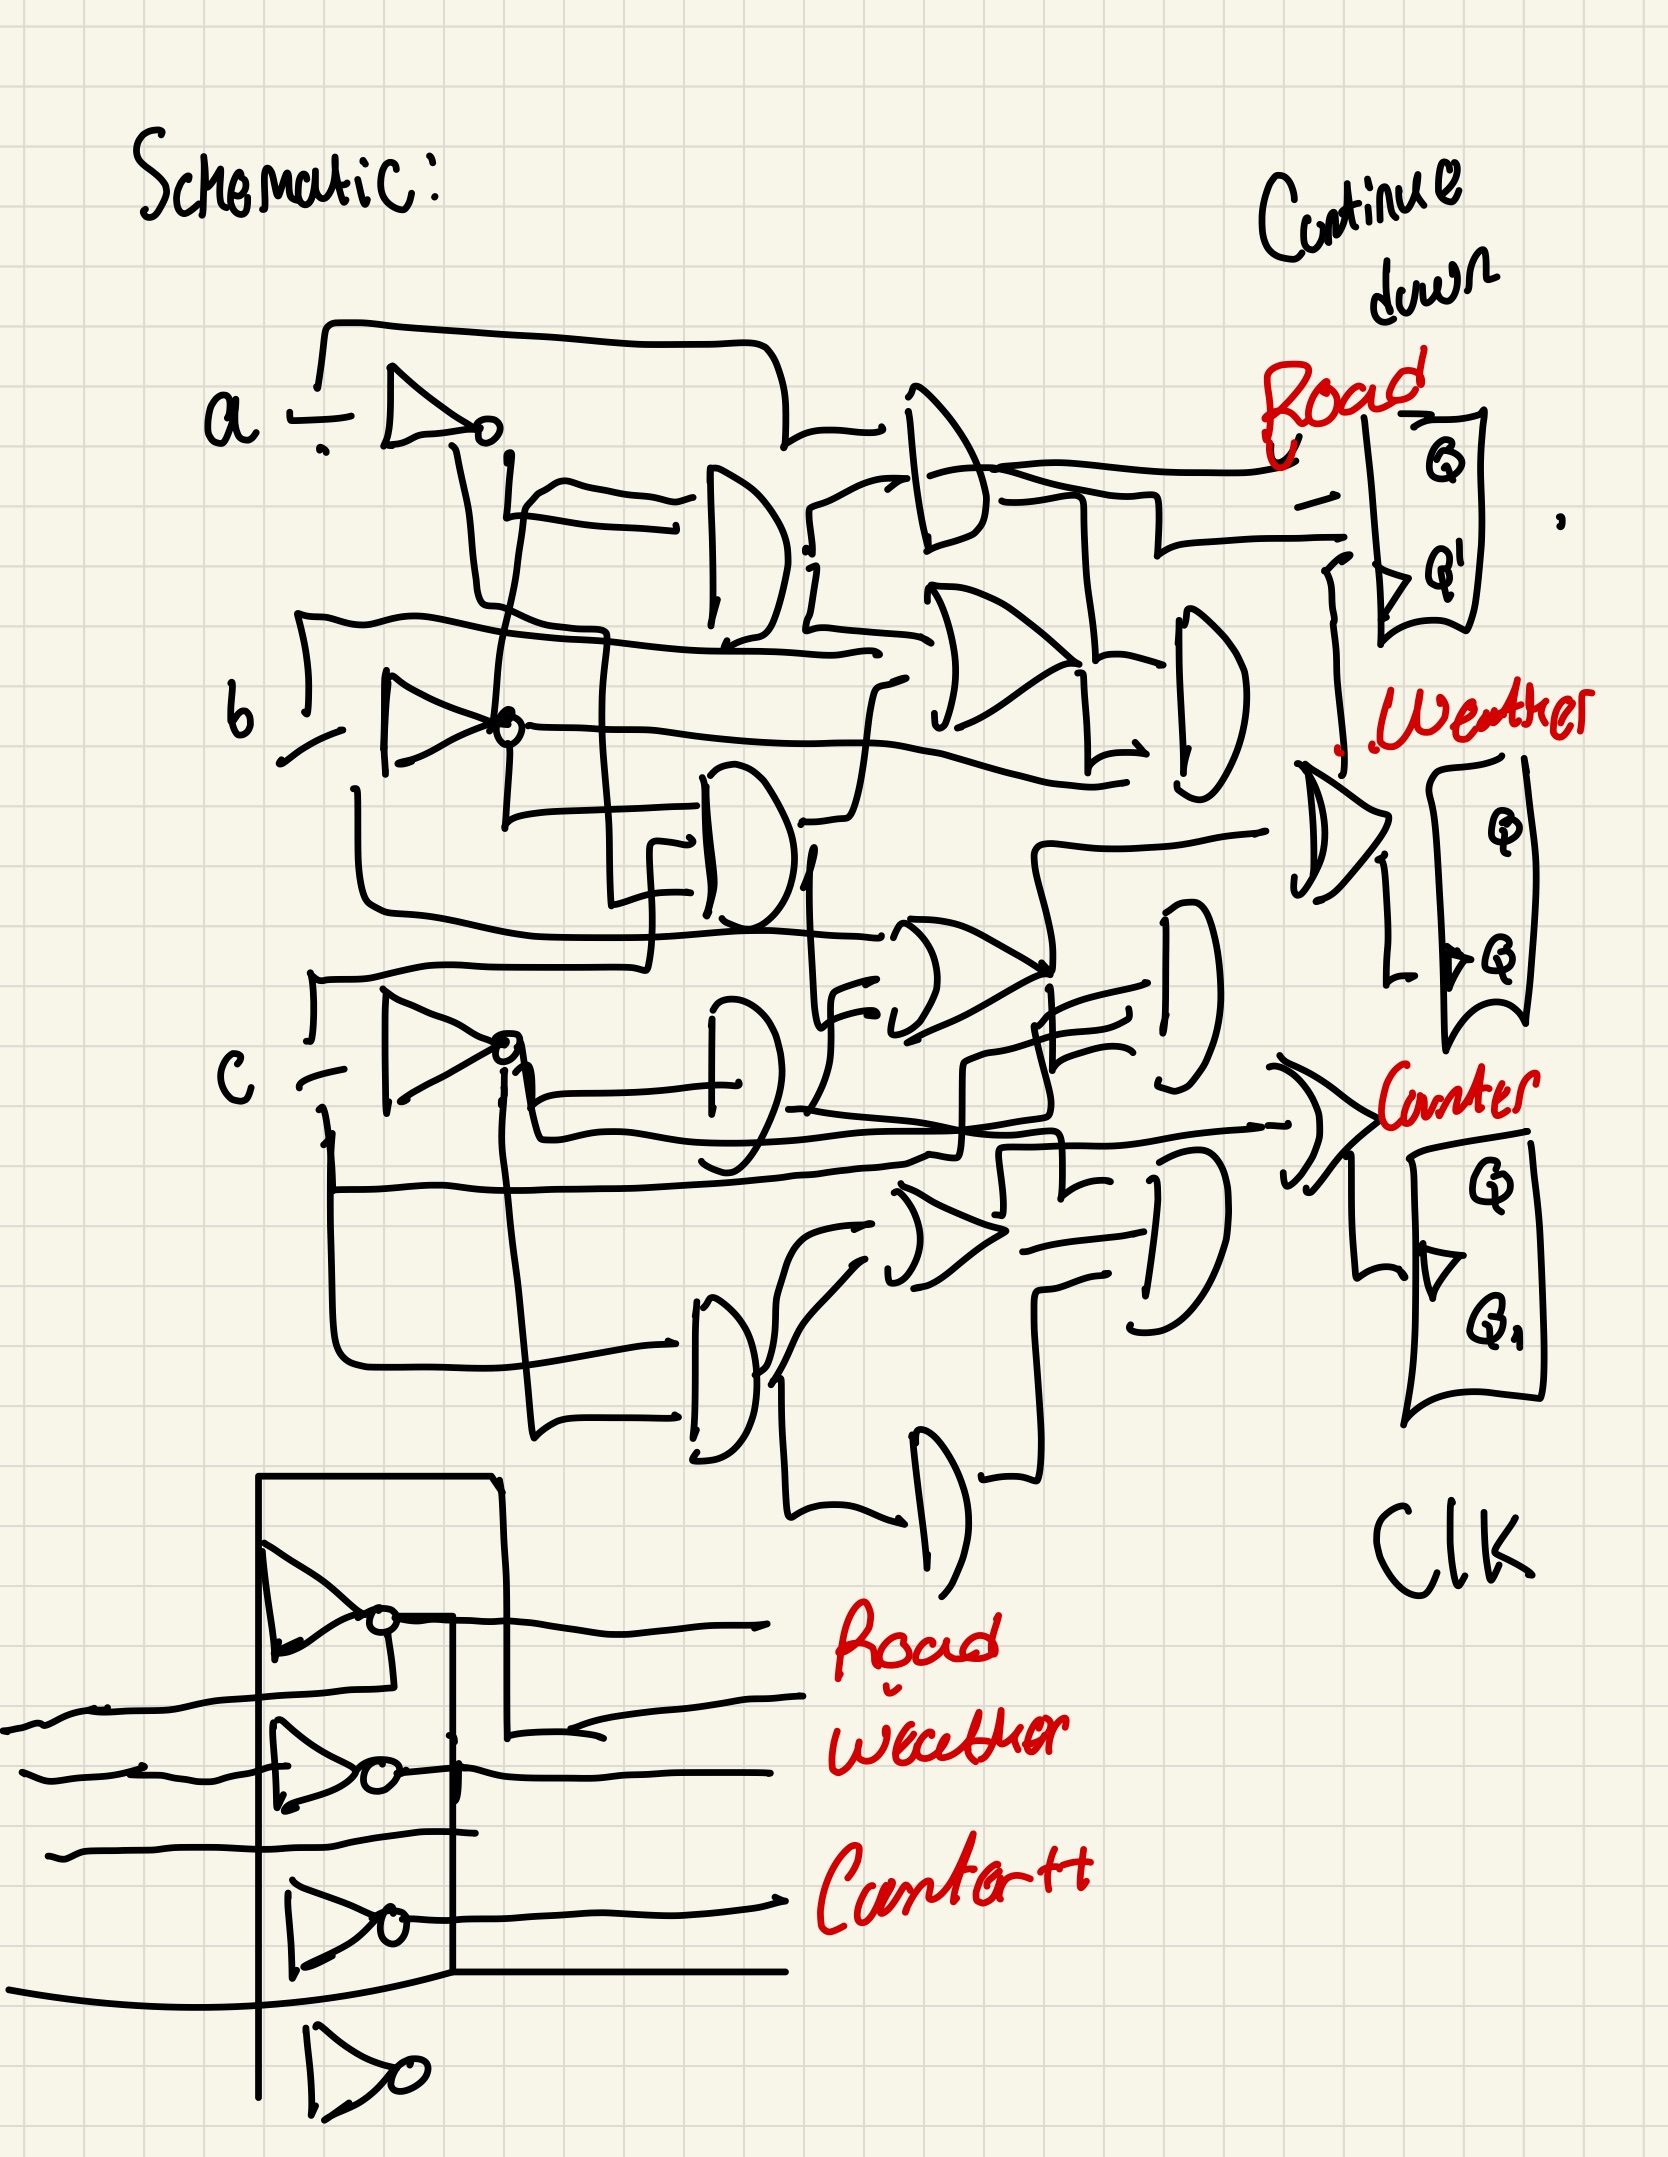 Schematic:
Continue
down
Road
a
Q
Q'
b
Weather
Q
Q
c
Counter
Q
Q
Clk
Road
Weather
Counter++